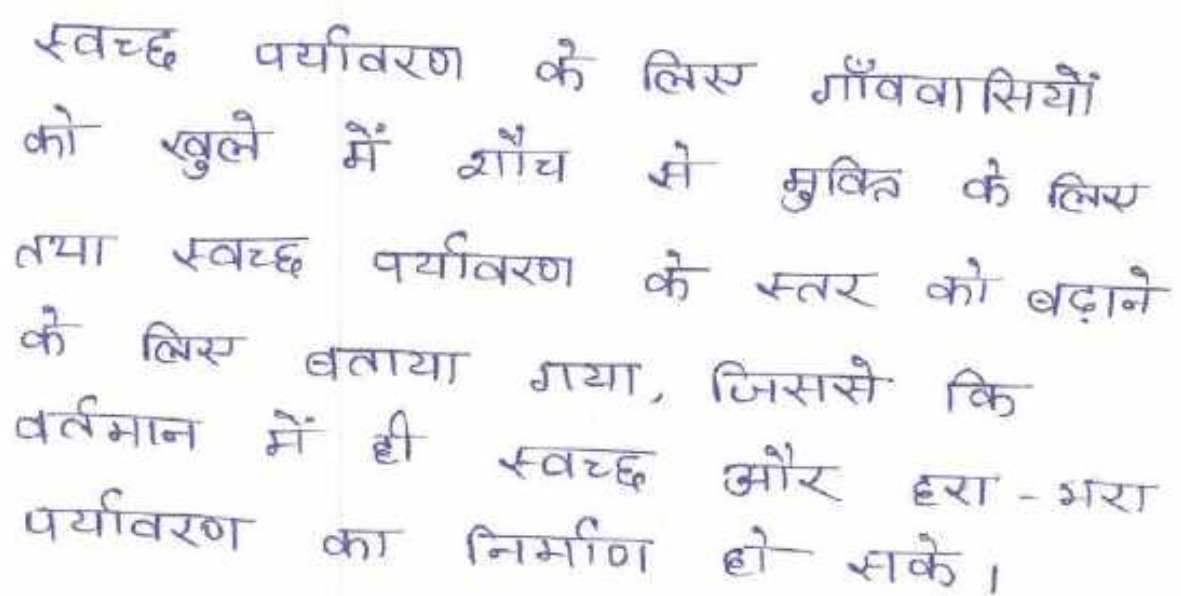 स्वच्छ पर्यावरण के लिए गाँववासियों
को खुले में शौच से मुक्ति के लिए
तथा स्वच्छ पर्यावरण के स्तर को बढ़ाने
के लिए बताया गया, जिससे कि
वर्तमान में ही स्वच्छ और हरा - भरा
पर्यावरण का निर्माण हो सके।